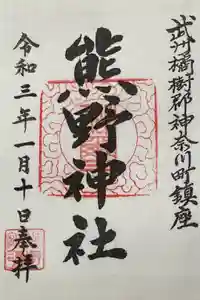 武州橘樹郡神奈川町鎮座
熊野神社
令和三年一月十日奉拝